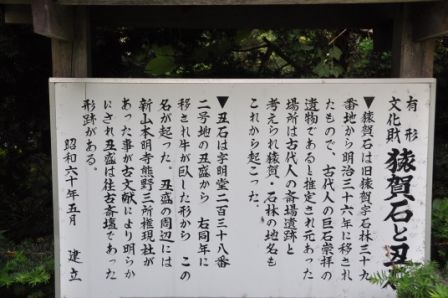 有形
文化財
猿賀石と丑
▼猿賀石は旧猿賀字石林三十九
番地から明治三十六年に移され
たもので、古代人の巨石崇拝の
遺物であると推定され元あった
場所は古代人の斎場遺跡と
考えられ猿賀・石林の地名も
これから起こった。
▼丑石は字明堂二百三十八番
二号地の丑盛から 右同年に
移され牛が臥した形から この
名が起った。丑盛の周辺には
新山本明寺熊野三所権現社が
あった事が古文献により明らか
にされ丑盛は往古斎壇であった
形跡がある。
昭和六十年五月 建立